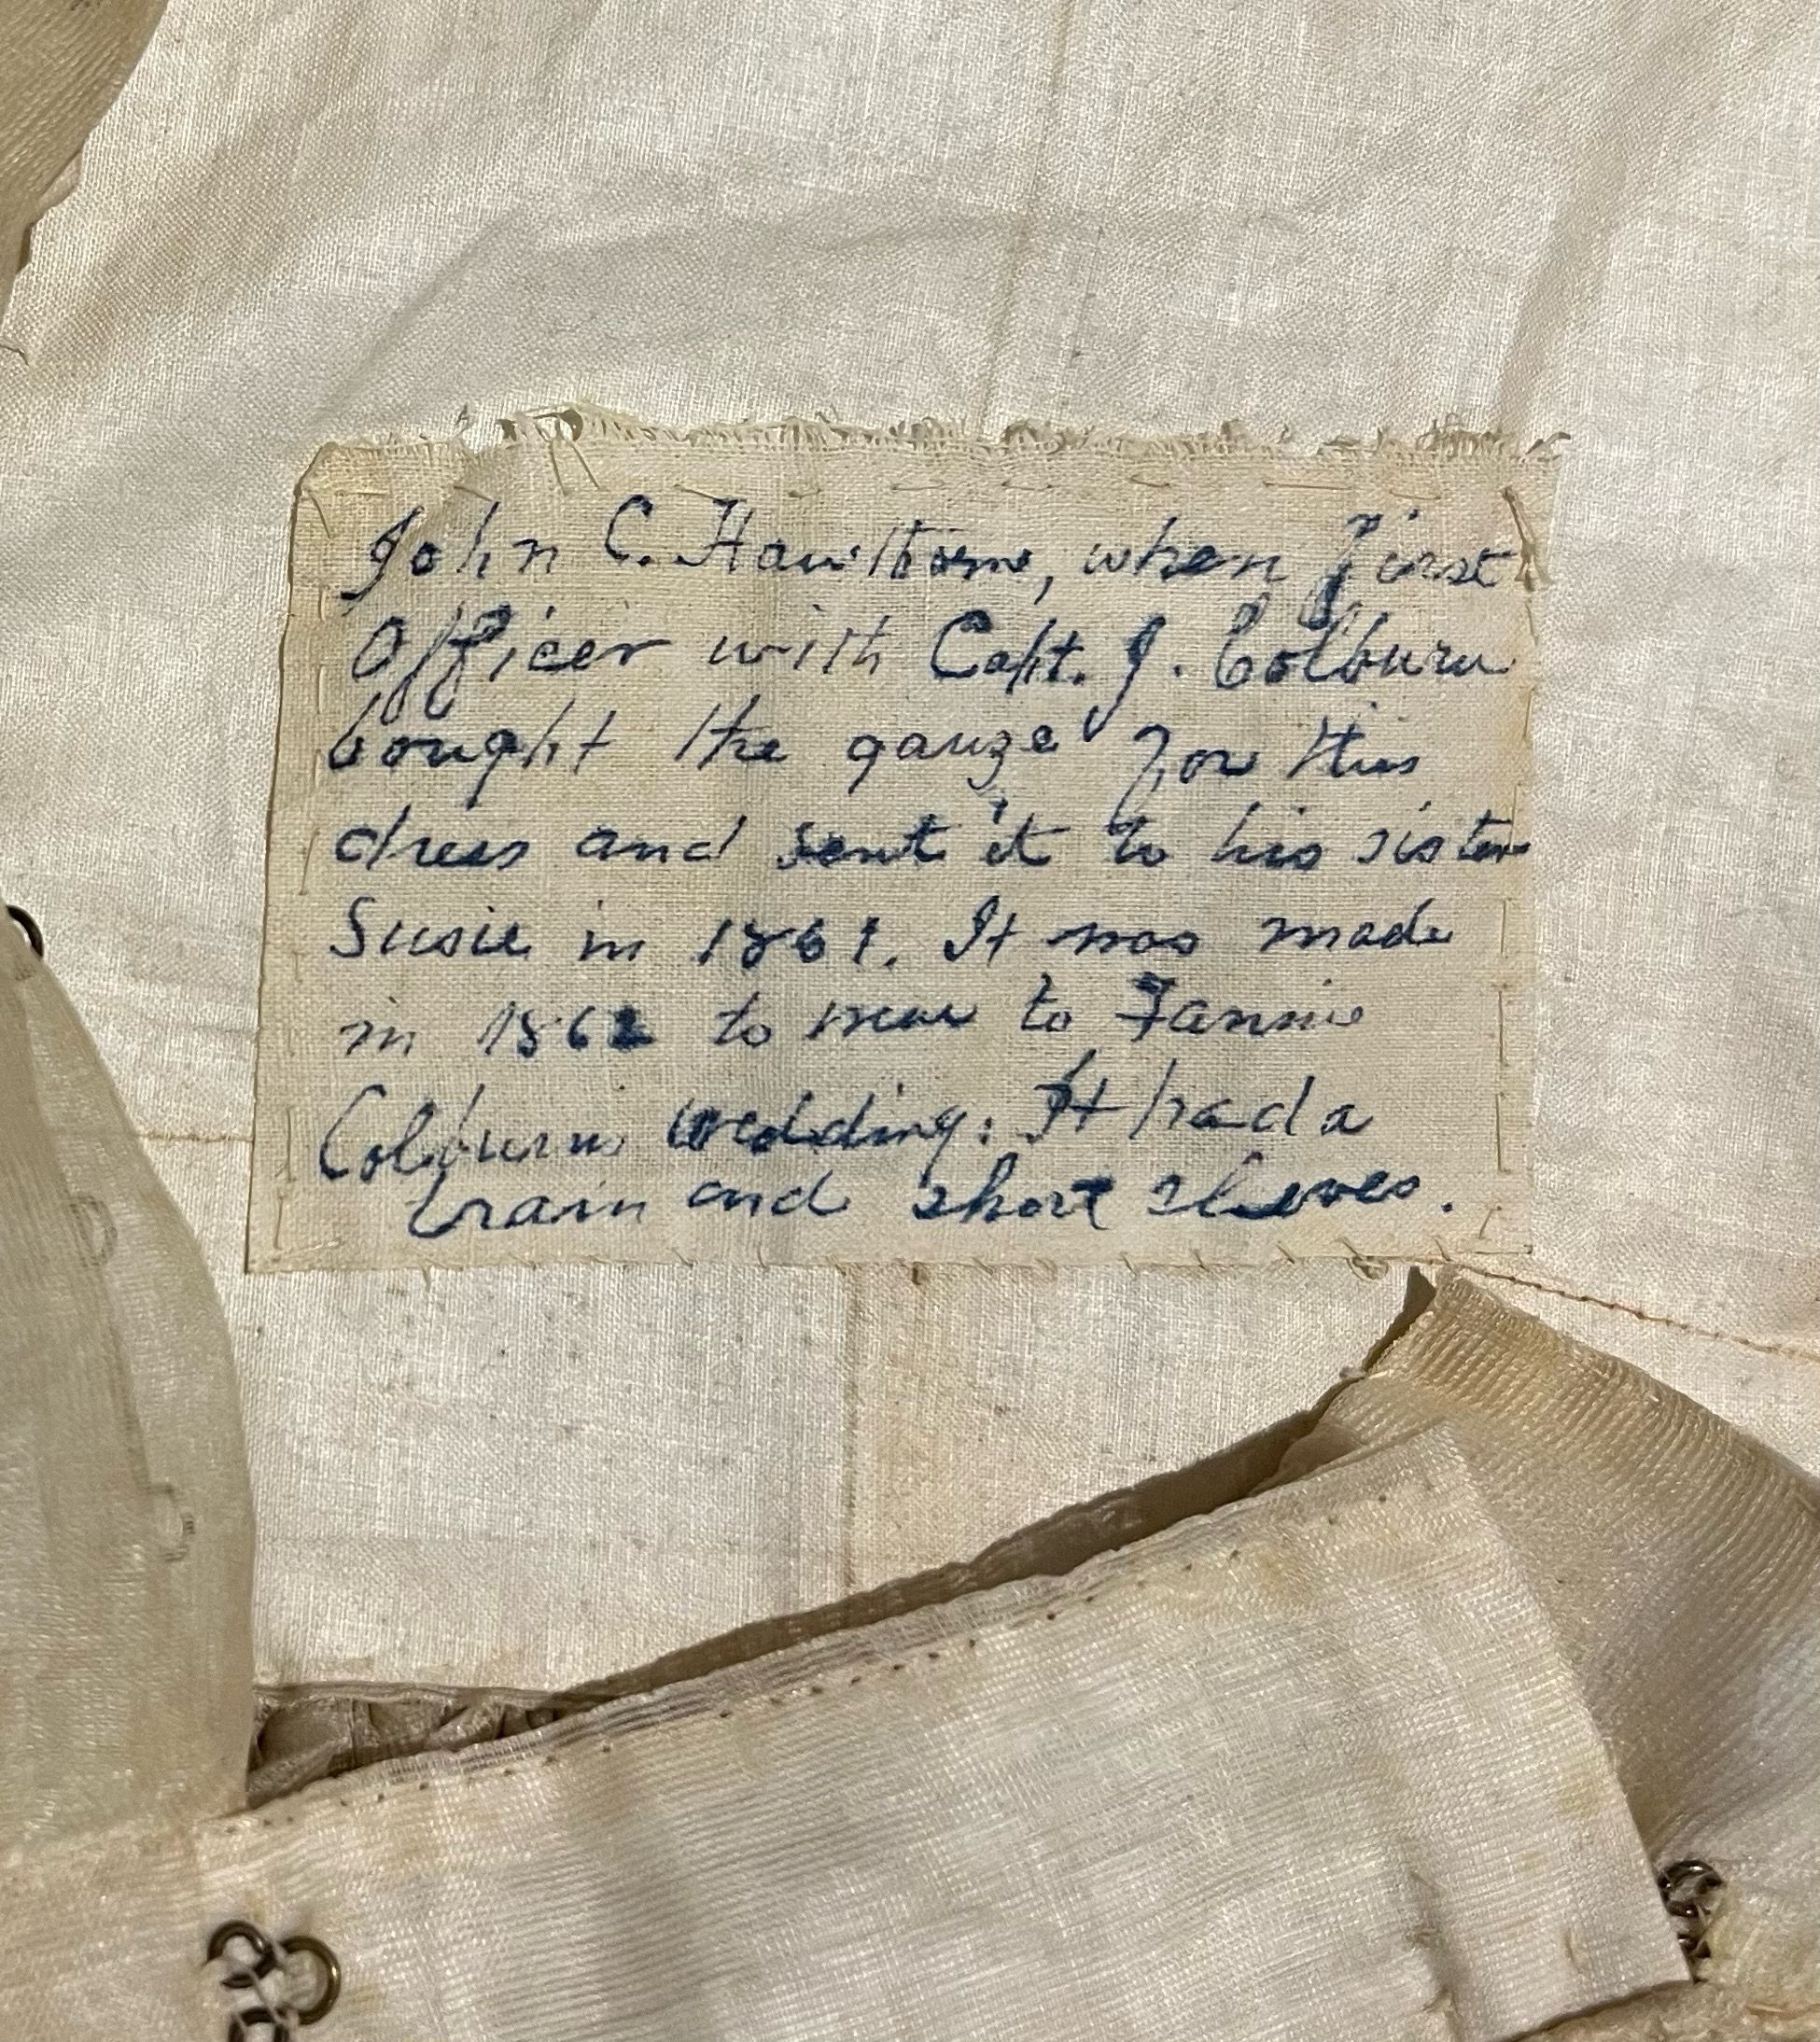 John C. Hawthorne, when first
Officer with Capt. J. Colburn
bought the gauze for this
dress and sent it to his sister
Susie in 1861. It was made
in 1862 to wear to Fannie
Colburn wedding. It had a
train and short sleeves.